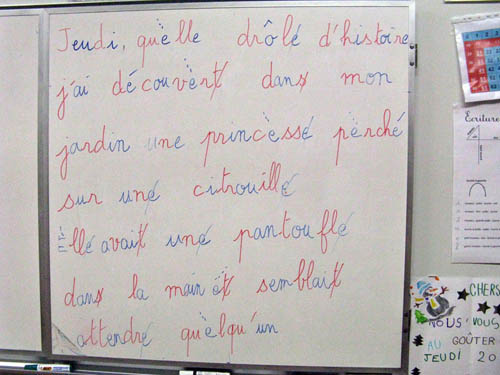 Jeudi, quèlle drôlé d'histoire
j'ai décou vèrt dans mon
jardin une princèssé pèrché
sur uné citrouillé
Ellé avait uné pantouflé
dans la main èt semblait
attendré quèlqu'un
Ecriture
CHERS
NOUS VOUS
AU GOÛTER
JEUDI 20